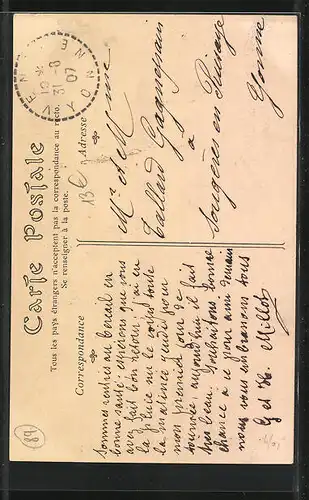 Carte Postale
Tous les pays étrangers n'acceptent pas la correspondance au recto.
Se renseigner à la poste.
Correspondance
Adresse
Sommes rentrés au bercail en
bonne santé. espérons que vous
avez fait bon retour. j'ai eu
la pluie sur le dos toute
la matinée jeudi pour
mon premier jour de
tournée, aujourd'hui il fait
très beau. Souhaitons bonne
chance à ce jour ami demain
nous vous embrassons tous
G et H. Millot
Mr et Mme
Calland Gagnepain
à
Sougères en Puisaye
Yonne
YONNE
07
89